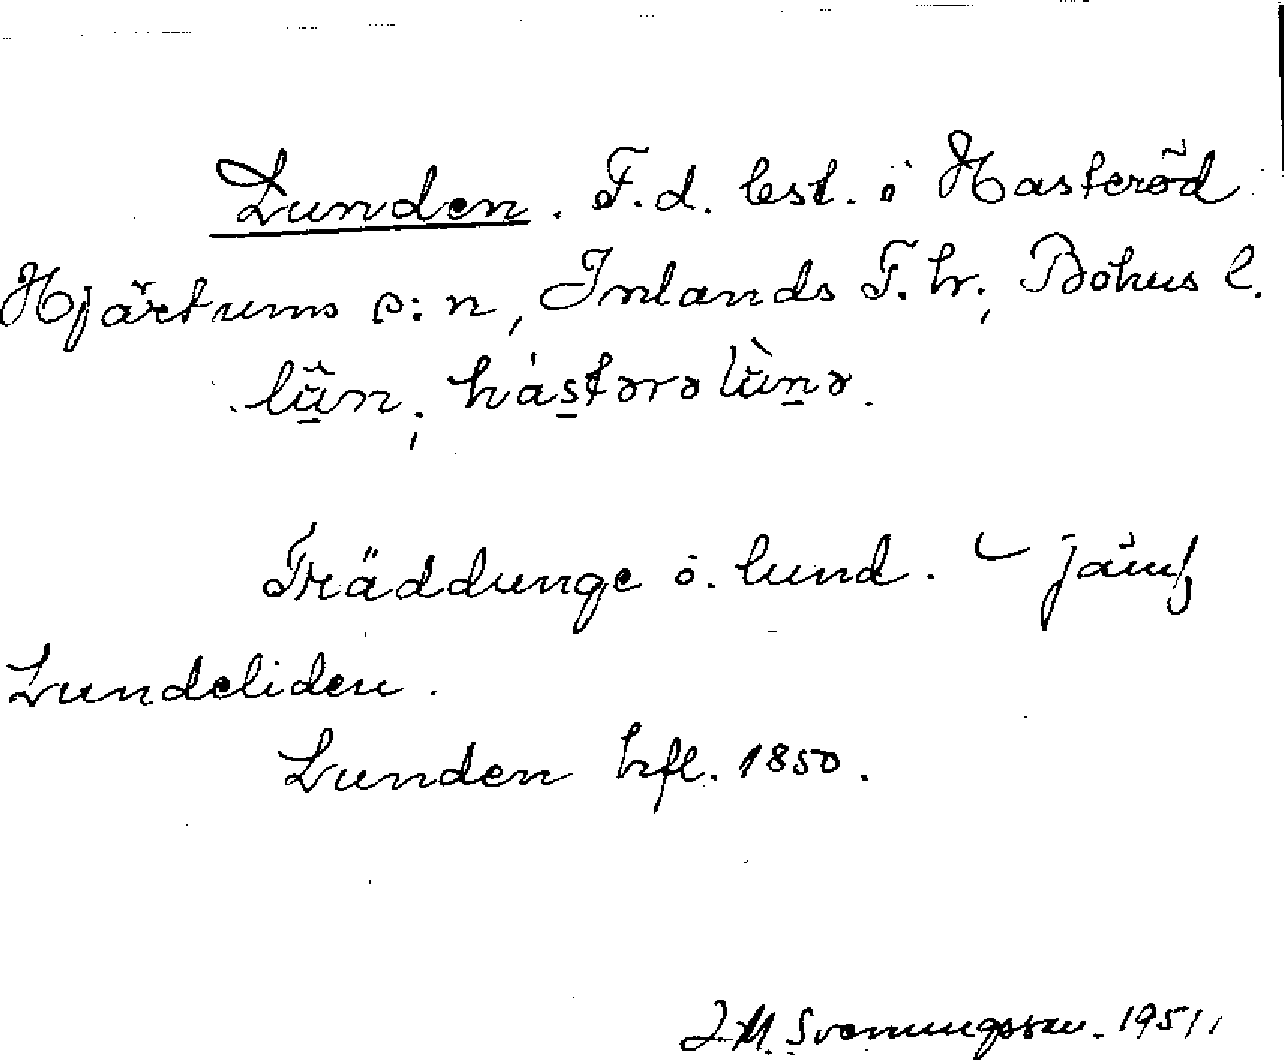 Lunden. F.d. lst. i Hasteröd
Hjärtums s:n, Inlands T. hr., Bohus l.
Träddunge o. lund. – jämf
Lundeliden.
Lunden hfl. 1850.
J.M. Svenungsson. 1951.